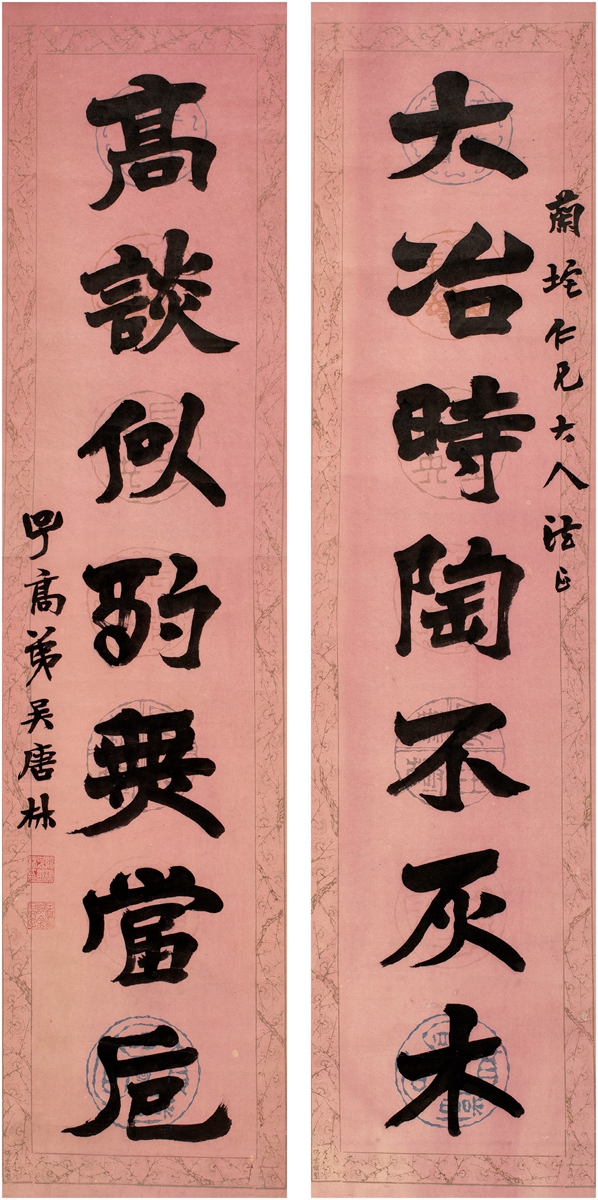 蘭坨仁兄大人法正
大冶時陶不灰木
高談似酌無當卮
子高弟吳唐林